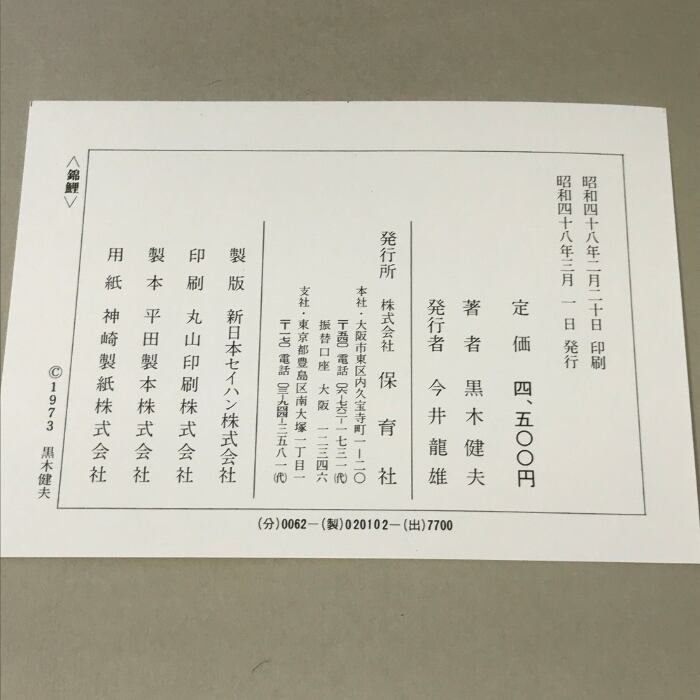 昭和四十八年二月二十日 印刷
昭和四十八年三月 一 日 発行
定 価 四、五〇〇円
著 者 黒 木 健 夫
発行者 今 井 龍 雄
発行所 株式会社 保 育 社
本社・大阪市東区内久宝寺町一ー二〇
電話
振替口座 大 阪 一二三四六
支社・東京都豊島区南大塚一丁目一
電話
製 版 新日本セイハン株式会社
印 刷 丸山印刷株式会社
製 本 平田製本株式会社
用 紙 神崎製紙株式会社
〈錦鯉〉
©1973 黒木健夫
(分)0062―(製)020102―(出)7700